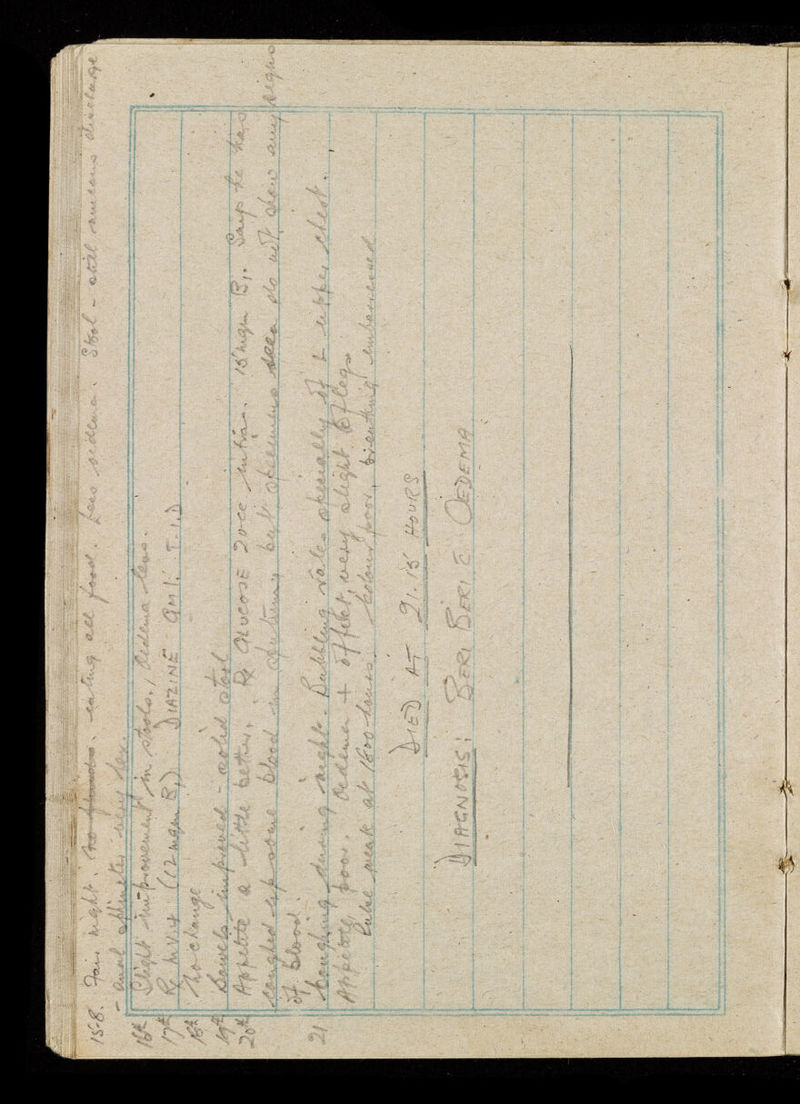 15-8. Fair night. No fluids. eating all food. Less oedema. Stool - still mucous discharge
- anal sphincter very lax.
16th Slight improvement in stools, Oedema less.
17th ℞ M.V. (12 mgm B,) DIAZINE Gm 1. T.I.D
18th No change
19th Bowels improved - solid stool
20th Appetite a little better. ℞ GLUCOSE 20cc intra. 15 mgm B,. Says he has
coughed up some blood in sputum but specimens seen do not show any signs
of blood.
21 Coughing during night. Bubbling rales specially of L upper chest.
Appetite poor. Oedema + of feet, very slight of legs
Pulse weak at 1800 hours. Colour poor, breathing embarrassed
DIED AT 21.15 HOURS
DIAGNOSIS: BERI BERI C̄ OEDEMA